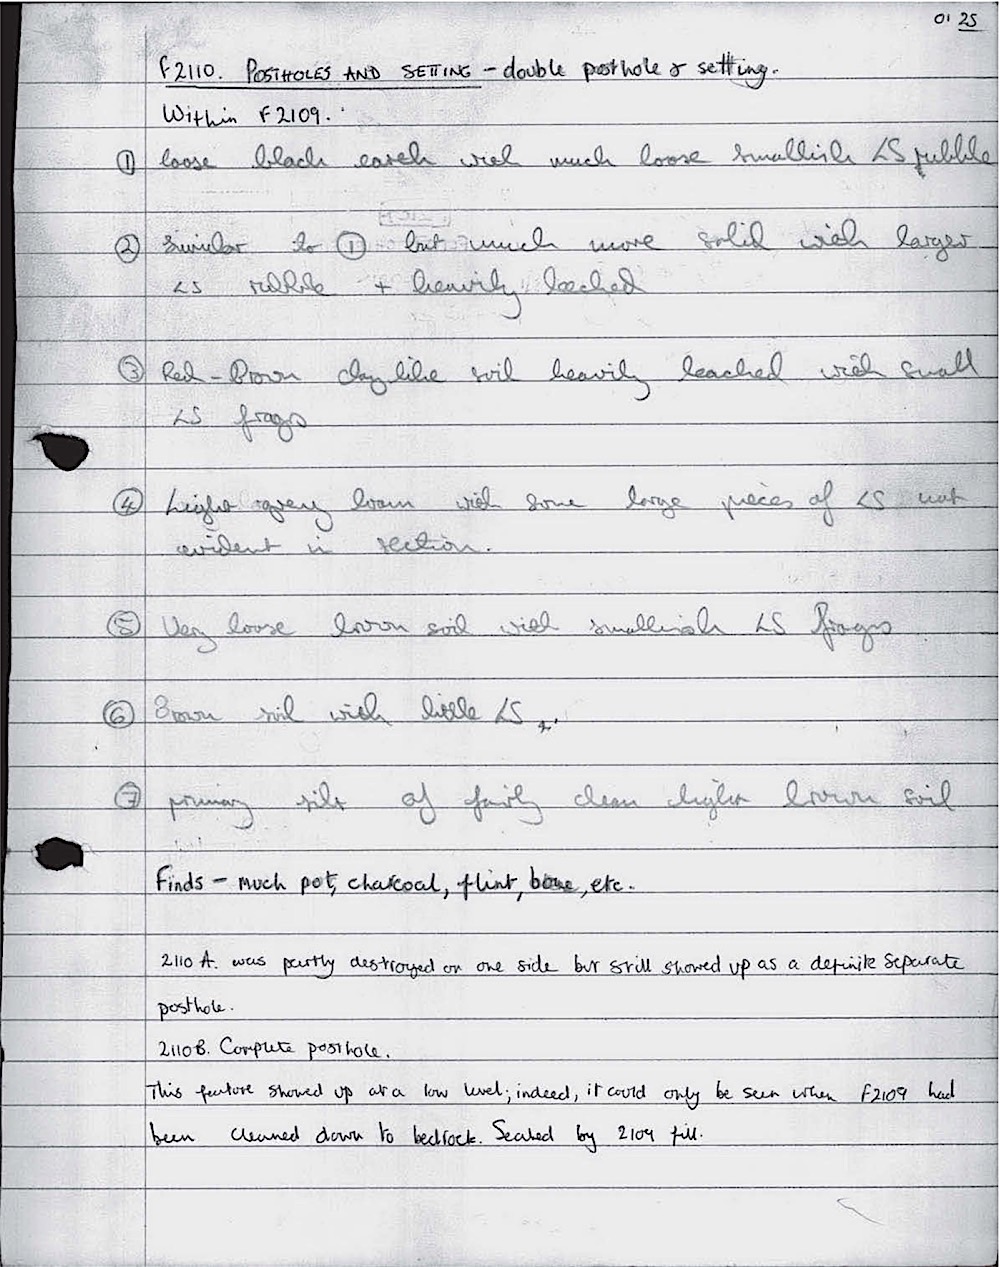 01 25
F2110. POSTHOLES AND SETTING - double posthole & setting.
Within F2109.
① loose black earth with much loose smallish LS rubble
② Similar to ① but much more solid with larger
LS rubble + heavily leached
③ Red-Brown clay like soil heavily leached with small
LS frags
④ Light grey loam with some large pieces of LS not
evident in section.
⑤ Very loose brown soil with smallish LS frags
⑥ Brown soil with little LS
⑦ primary silt of fairly clean lightr brown soil
Finds - much pot, charcoal, flint, bone, etc.
2110 A. was partly destroyed on one side but still showed up as a definite separate
posthole.
2110B. Complete posthole.
This feature showed up at a low level; indeed, it could only be seen when F2109 had
been cleaned down to bedrock. Sealed by 2109 fill.